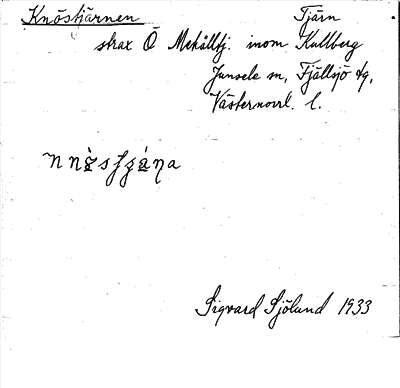 Knöstjärnen Tjärn
strax Ö Mekålltj. inom Kullberg
Junsele sn, Fjällsjö tg,
Västernorrl. l.
Sigvard Sjölund 1933